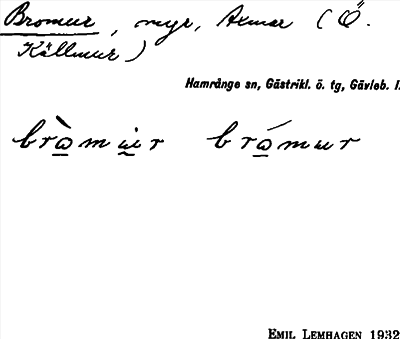 Bromur, myr, Axmar (Ö.
Källmur)
Hamrånge sn, Gästrikl. ö. tg, Gävleb. l.
EMIL LEMHAGEN 1932